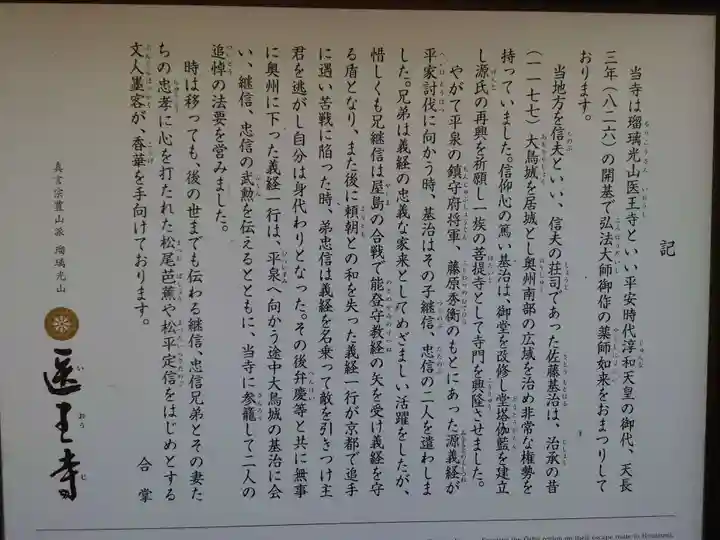 記
当寺は瑠璃光山医王寺といい平安時代淳和天皇の御代、天長
三年（八二六）の開基で弘法大師御作の薬師如来をおまつりして
おります。
当地方を信夫といい、信夫の荘司であった佐藤基治は、治承の昔
（一一七七）大鳥城を居城とし奥州南部の広域を治め非常な権勢を
持っていました。信仰心の篤い基治は、御堂を改修し堂塔伽藍を建立
し源氏の再興を祈願し一族の菩提寺として寺門を興隆させました。
やがて平泉の鎮守府将軍、藤原秀衡のもとにあった源義経が
平家討伐に向かう時、基治はその子継信、忠信の二人を遣わしま
した。兄弟は義経の忠義な家来としてめざましい活躍をしたが、
惜しくも兄継信は屋島の合戦で能登守教経の矢を受け義経を守
る盾となり、また後に頼朝との和を失った義経一行が京都で追手
に遇い苦戦に陥った時、弟忠信は義経を名乗って敵を引きつけ主
君を逃がし自分は身代わりとなった。その後弁慶等と共に無事
に奥州に下った義経一行は、平泉へ向かう途中大鳥城の基治に会
い、継信、忠信の武勲を伝えるとともに、当寺に参籠して二人の
追悼の法要を営みました。
時は移っても、後の世までも伝わる継信、忠信兄弟とその妻た
ちの忠孝に心を打たれた松尾芭蕉や松平定信をはじめとする
文人墨客が、香華を手向けております。
合掌
真言宗豊山派 瑠璃光山
医王寺